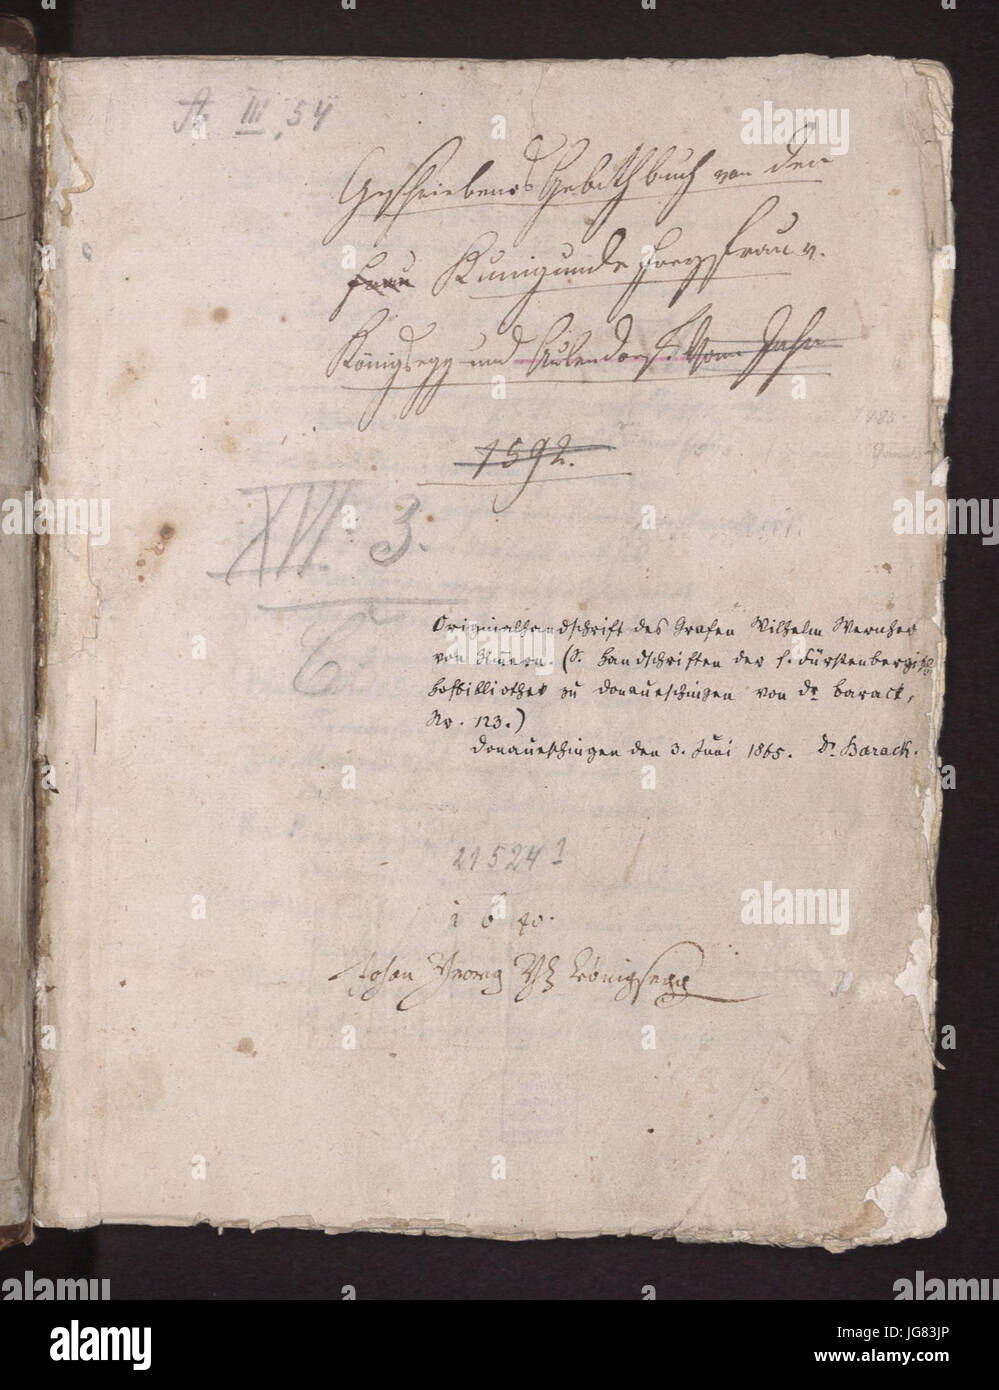 III, 54
Geschriebenes Gebethbuch von der
Frau Kunigunde Freyfrau v.
Königsegg und Aulendorf. Vom Jahr
1592.
XVI. 3.
6
Originalhandschrift des Grafen Wilhelm Wernher
von Zimmern. (S. Handschriften der f. Fürstenbergisch
Hofbibliothek zu Donaueschingen von Dr Barack,
No. 123.)
Donaueschingen den 3. Juni 1865. Dr Barack.
21524
Johan Georg Königsegg
alamy
JG83JP
www.alamy.com